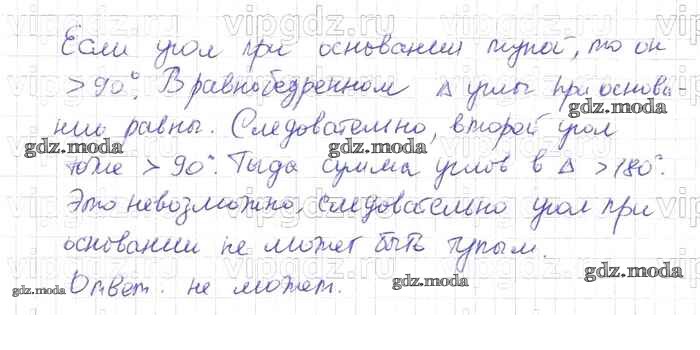 Если угол при основании тупой, то он
> 90°. В равнобедренном Δ углы при основа-
нии равны. Следовательно, второй угол
тоже > 90°. Тогда сумма углов в Δ > 180°.
Это невозможно, следовательно угол при
основании не может быть тупым.
Ответ. не может.
gdz.moda
gdz.moda
gdz.moda
gdz.moda
gdz.moda
gdz.moda
gdz.moda
vipgdz.ru